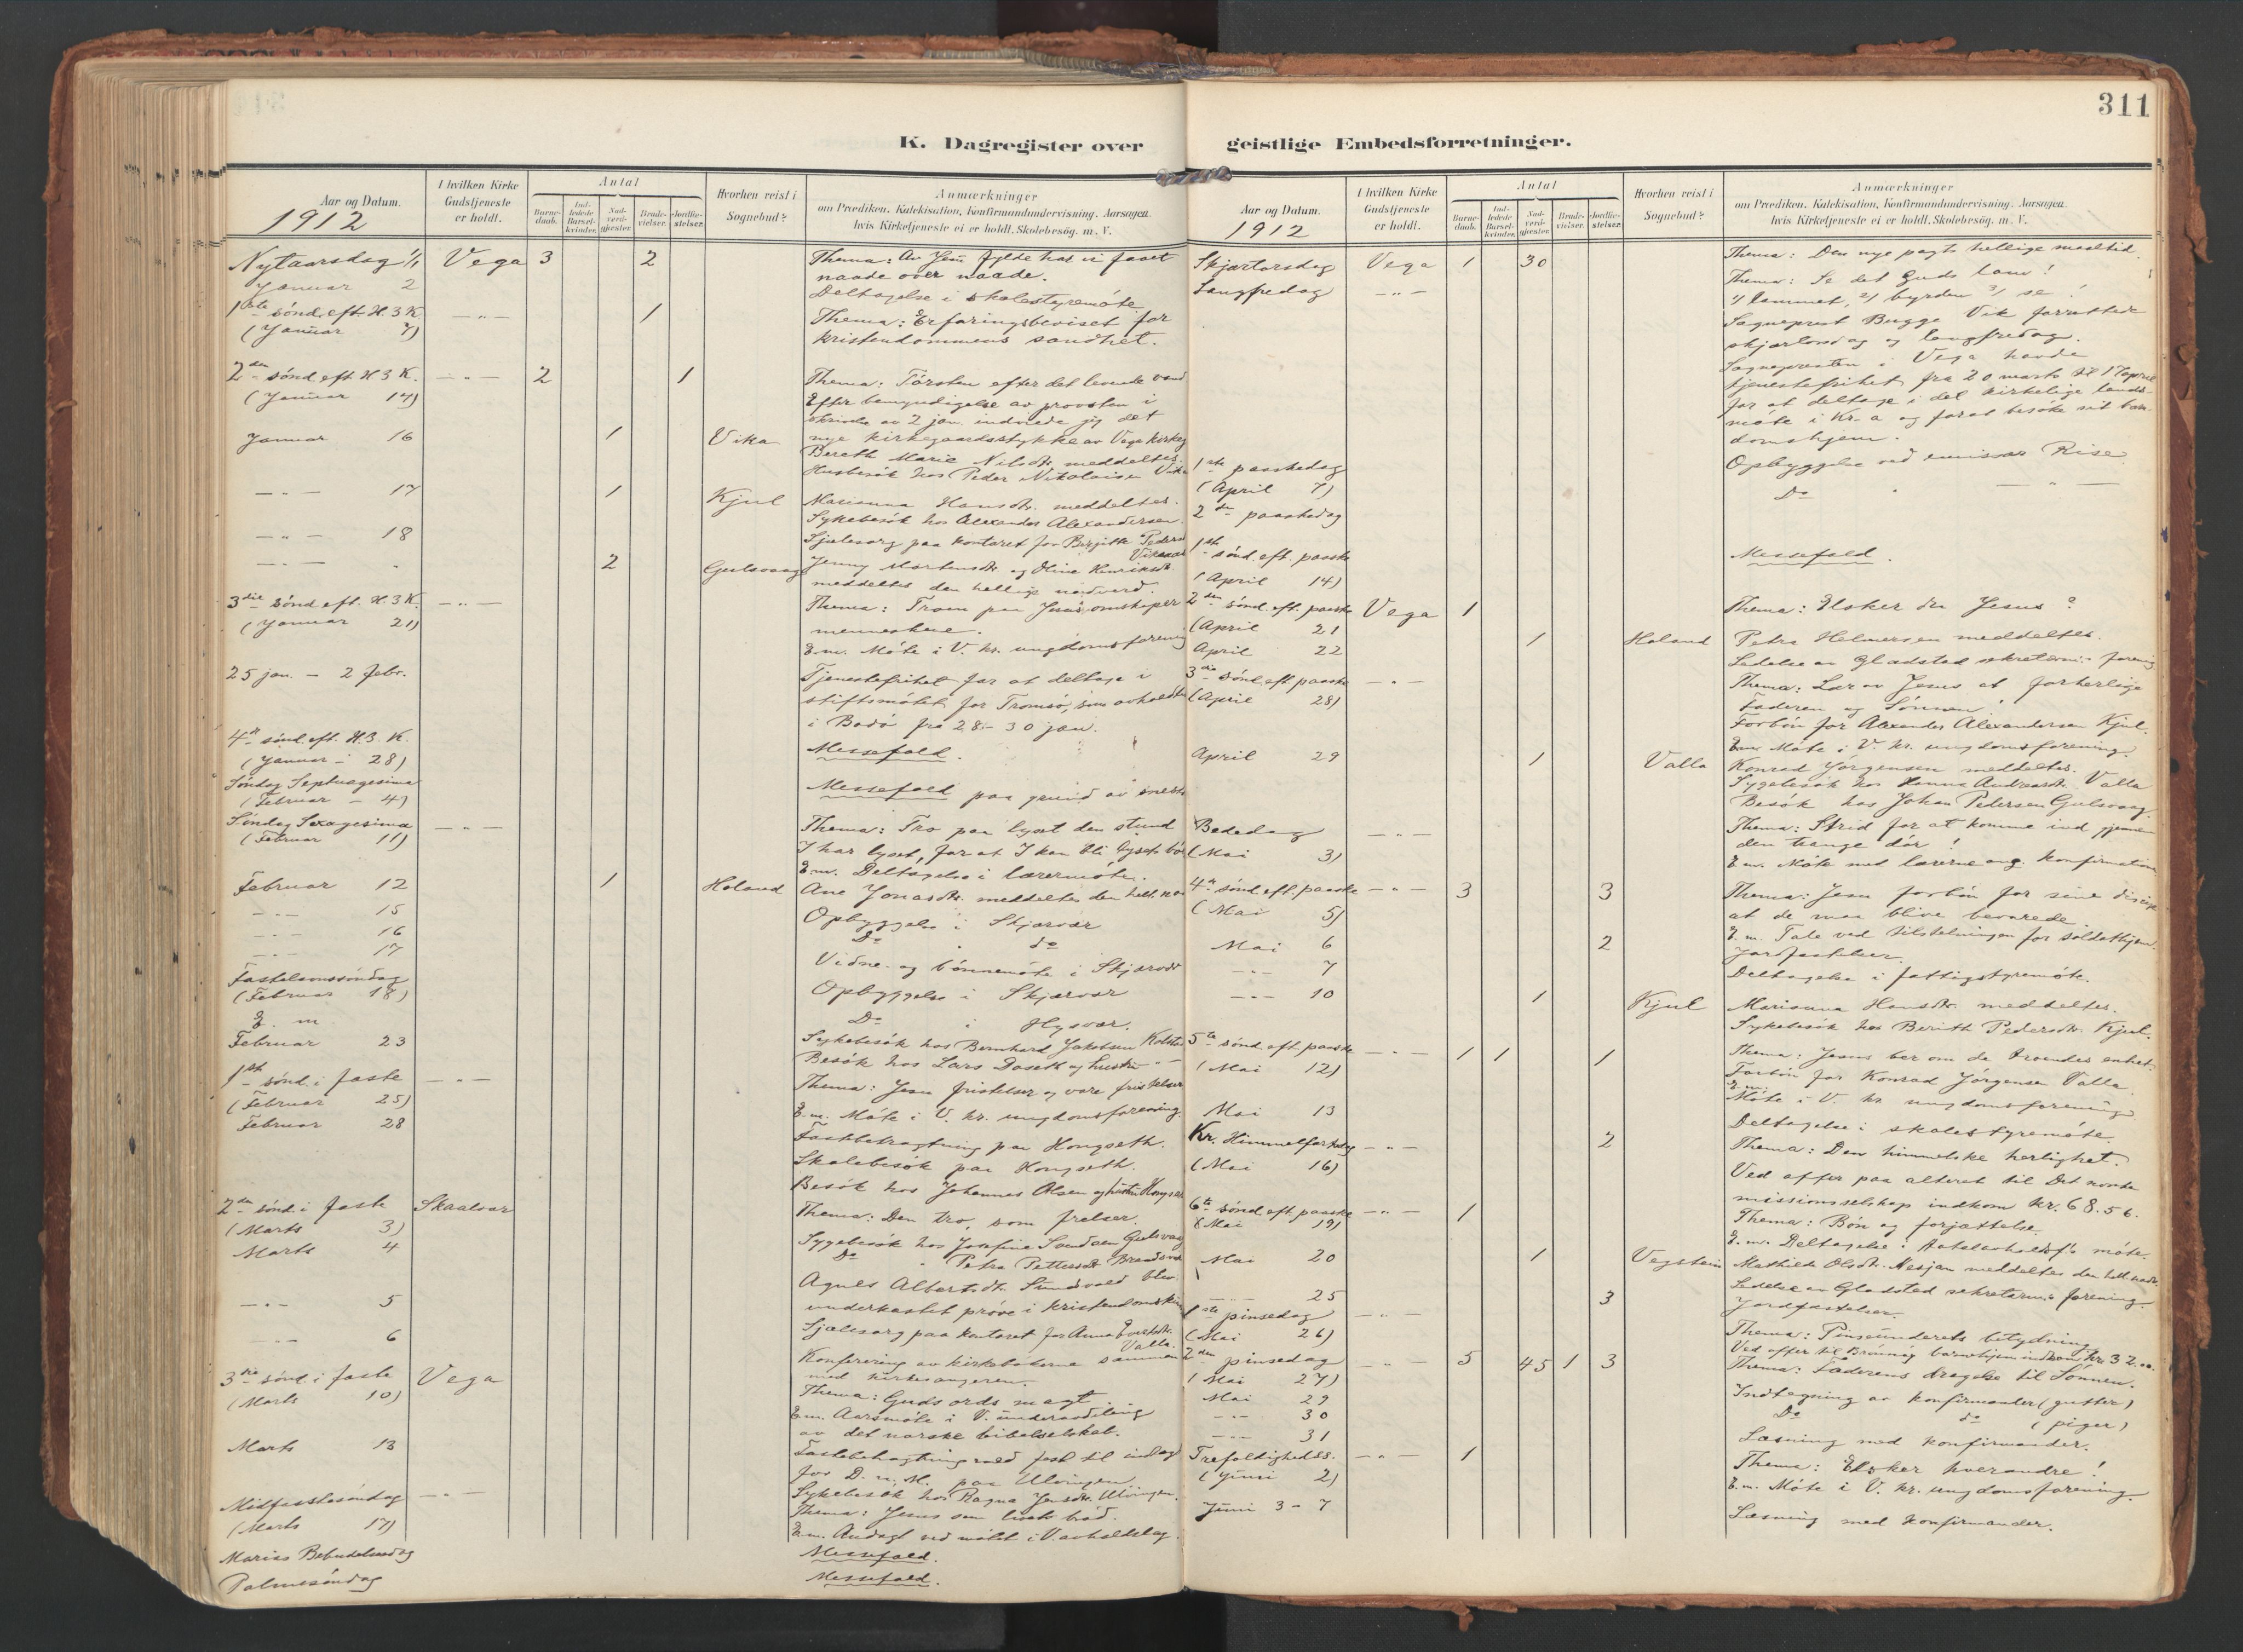 311
K. Dagregister over geistlige Embedsforretninger.
Aar og Datum.
1912
I hvilken Kirke Gudstjeneste er holdt.
Antal
Barnedaab.
Indledede Barselkvinder.
Nadverdgjæster.
Brudevielser.
Jordfæstelser.
Hvorhen reist i Sognebud?
Anmærkninger
om Prædiken, Katekisation, Konfirmandundervisning, Aarsagen
hvis Kirketjeneste ei er holdt. Skolebesøg. m. V.
Nytaarsdag 1/1 Vega 3 2 Thema: Av Jesu fylde har vi faaet
naade over naade.
Januar 2 Deltagelse i skolestyremöte
1ste sönd. eft. H.3K. —„— 1 Thema: Erfaringsbeviset for
(Januar 7) kristendommens sandhet.
2den sönd eft. H 3 K. —„— 2 1 Thema: Törsten efter det levende vand
(Januar 14) Efter bemyndigelse av provsten i
skrivelse av 2 jan. indviede jeg det
nye kirkegaardsstykke av Vega kirkeg
Januar 16 1 Vika Bereth Marie Nilsdtr. meddeltes.
Husbesök hos Peder Nikolaisen Vika
—„— 17 1 Kjul Marianna Hansdtr. meddeltes.
Sykebesök hos Alexander Alexandersen.
—„— 18 Sjælesorg paa kontoret for Birgitte Peders
—„— 2 Gulsvaag Jenny Martensdtr. og Oline Henriksdtr.
meddeltes den hellige nadverd.
3die sönd eft. H.3K. —„— Thema: Troen paa Jesus omskaper
(Januar 21) menneskene.
E.m. Möte i V. kr. ungdomsforening
25 jan. – 2 febr. Tjenestefrihet for at deltage i
stiftsmötet for Tromsö, som avholdtes
i Bodö fra 28.–30 jan.
4de sönd. eft. H.3. K.
(Januar – 28) Messefald.
Söndag Septuagesima
(Februar – 4) Messefald paa grund av
Söndag Sexagesima —„— Thema: Tro paa lyset den stund
(Februar 11) I har lyset, for at I kan bli lysets
E.m. Deltagelse i lærermöte.
Februar 12 1 Holand Ane Jonasdtr. meddeltes den hell. nad
—„— 15 Opbyggelse i Skjærvær
—„— 16 Do „ do
—„— 17 Vidne- og bönnemöte i Skjærvær
Fastelavnssöndag
(Februar 18) Opbyggelse i Skjærvær
E. m Do i Hysvær.
Februar 23 Sykebesök hos Bernhard Jakobsen
Besök hos Lars og hustru —„—
1ste sönd. i faste —„— Thema: Jesu fristelser og vore fristelser
(Februar 25) E.m. Möte i V. kr. ungdomsforening.
Februar 28 Fastebetragtning paa Hongseth.
Skolebesök paa Hongseth.
Besök hos Johannes Olsen og hustru
2den sönd i faste Skaalvær Thema: Den tro, som frelser.
(Marts 3)
Marts 4 Sygebesök hos Josefine Sundsen Gulsvaag
Do „ Petra Pettersdtr.
—„— 5 Agnes Albertsdtr. blev
underkastet pröve i kristendomskun
—„— 6 Sjælesorg paa kontoret for Anna Valla.
Konferering av kirkebökerne sammen
med kirkesangeren.
3die sönd. i faste Vega Thema: Guds ords magt.
(Marts 10) E.m. Aarsmöte i V. underavdeling
av det norske bibelselskab.
Marts 13 Fastebetragtning ved fest til indtægt
for D. n. M. paa Ulvingen.
Sykebesök hos Ragna Jensdtr. Ulvingen.
Midfastesöndag —„— Thema: Jesus som livets bröd.
(Marts 17) E.m. Andagt ved möte i V. avholdslag
Mariæ Bebudelsesdag Messefald.
Palmesöndag Messefald.
Aar og Datum.
1912
I hvilken Kirke Gudstjeneste er holdt.
Antal
Barnedaab.
Indledede Barselkvinder.
Nadverdgjæster.
Brudevielser.
Jordfæstelser.
Hvorhen reist i Sognebud?
Anmærkninger
om Prædiken, Katekisation, Konfirmandundervisning, Aarsagen
hvis Kirketjeneste ei er holdt. Skolebesøg. m. V.
Skjærtorsdag Vega 1 30 Thema: Den nye pagts hellige maaltid.
Langfredag —„— Thema: Se det Guds lam!
1/ lammet, 2/ byrden 3/ se!
Sogneprest Bugge Vik forrettede
skjærtorsdag og langfredag.
Sognepresten i Vega havde
tjenestefrihet fra 20 marts til 17 april
for at deltage i det kirkelige lands-
möte i Kr.a og for at besöke sit barn-
domshjem.
1ste paaskedag Opbyggelse ved emissær Rise
(April 7)
2den paaskedag Do „ —„—
1ste sönd. eft. paaske Messefald.
(April 14)
2den sönd. eft. paaske Vega 1 Thema: Elsker du Jesus?
(April 21
April 22 1 Holand Petra Helmersen meddeltes.
Ledelse av Gladsted sekretærens forening
3die sönd. eft. paaske —„— Thema: Lær av Jesus at forherlige
(April 28) Faderen og Sönnen!
Forbön for Alexander Alexandersen Kjul.
E.m. Möte i V. kr. ungdomsforening.
April 29 1 Valla Konrad Jörgensen meddeltes.
Sygebesök hos Hanna Andreasdtr. Valla
Besök hos Johan Pedersen Gulsvaag.
Bededag —„— Thema: Strid for at komme ind gjennem
(Mai 3) den trange dör!
E.m. Möte med lærerne ang. konfirmation
4de sönd. eft. paaske —„— 3 3 Thema: Jesu forbön for sine disciple
(Mai 5) at de maa blive bevarede.
E.m. Tale ved tilstelningen for soldathjem.
Mai 6 2 Jordfæstelser.
—„— 7 Deltagelse i fattigstyremöte.
—„— 10 1 Kjul Marianna Hansdtr. meddeltes.
Sykebesök hos Berith Pedersdtr. Kjul.
5te sönd. eft. paaske —„— 1 1 1 Thema: Jesus ber om de troendes enhet.
(Mai 12) Forbön for Konrad Jörgensen Valla.
E.m. Möte i V. kr ungdomsforening
Mai 13 Deltagelse i skolestyremöte.
Kr. Himmelfartsdag —„— 2 Thema: Den himmelske herlighet.
(Mai 16) Ved offer paa alteret til Det norske
missionsselskap indkom kr. 68.56.
6te sönd. eft. paaske —„— 1 Thema: Bön og forjættelse.
(Mai 19) E.m. Deltagelse i möte.
Mai 20 1 Vegstein Mathilde Olsdtr. Nesjan meddeltes den hell. nadv.
Ledelse av Gladsted sekretærens forening.
—„— 25 3 Jordfæstelser.
1ste pinsedag —„— Thema: Pinseunderets betydning.
(Mai 26) Ved offer til Brönnöy barnehjem indkom kr. 32.00
2den pinsedag —„— 5 45 1 3 Thema: Faderens dragelse til Sönnen.
(Mai 27)
Mai 29 Indtegning av konfirmander (gutter)
—„— 30 Do do (piger)
—„— 31 Læsning med konfirmander.
Trefoldighedss. —„— 1 Thema: Elsker hverandre!
(Juni 2) E.m. Möte i V. kr. ungdomsforening.
Juni 3 – 7 Læsning med konfirmander.